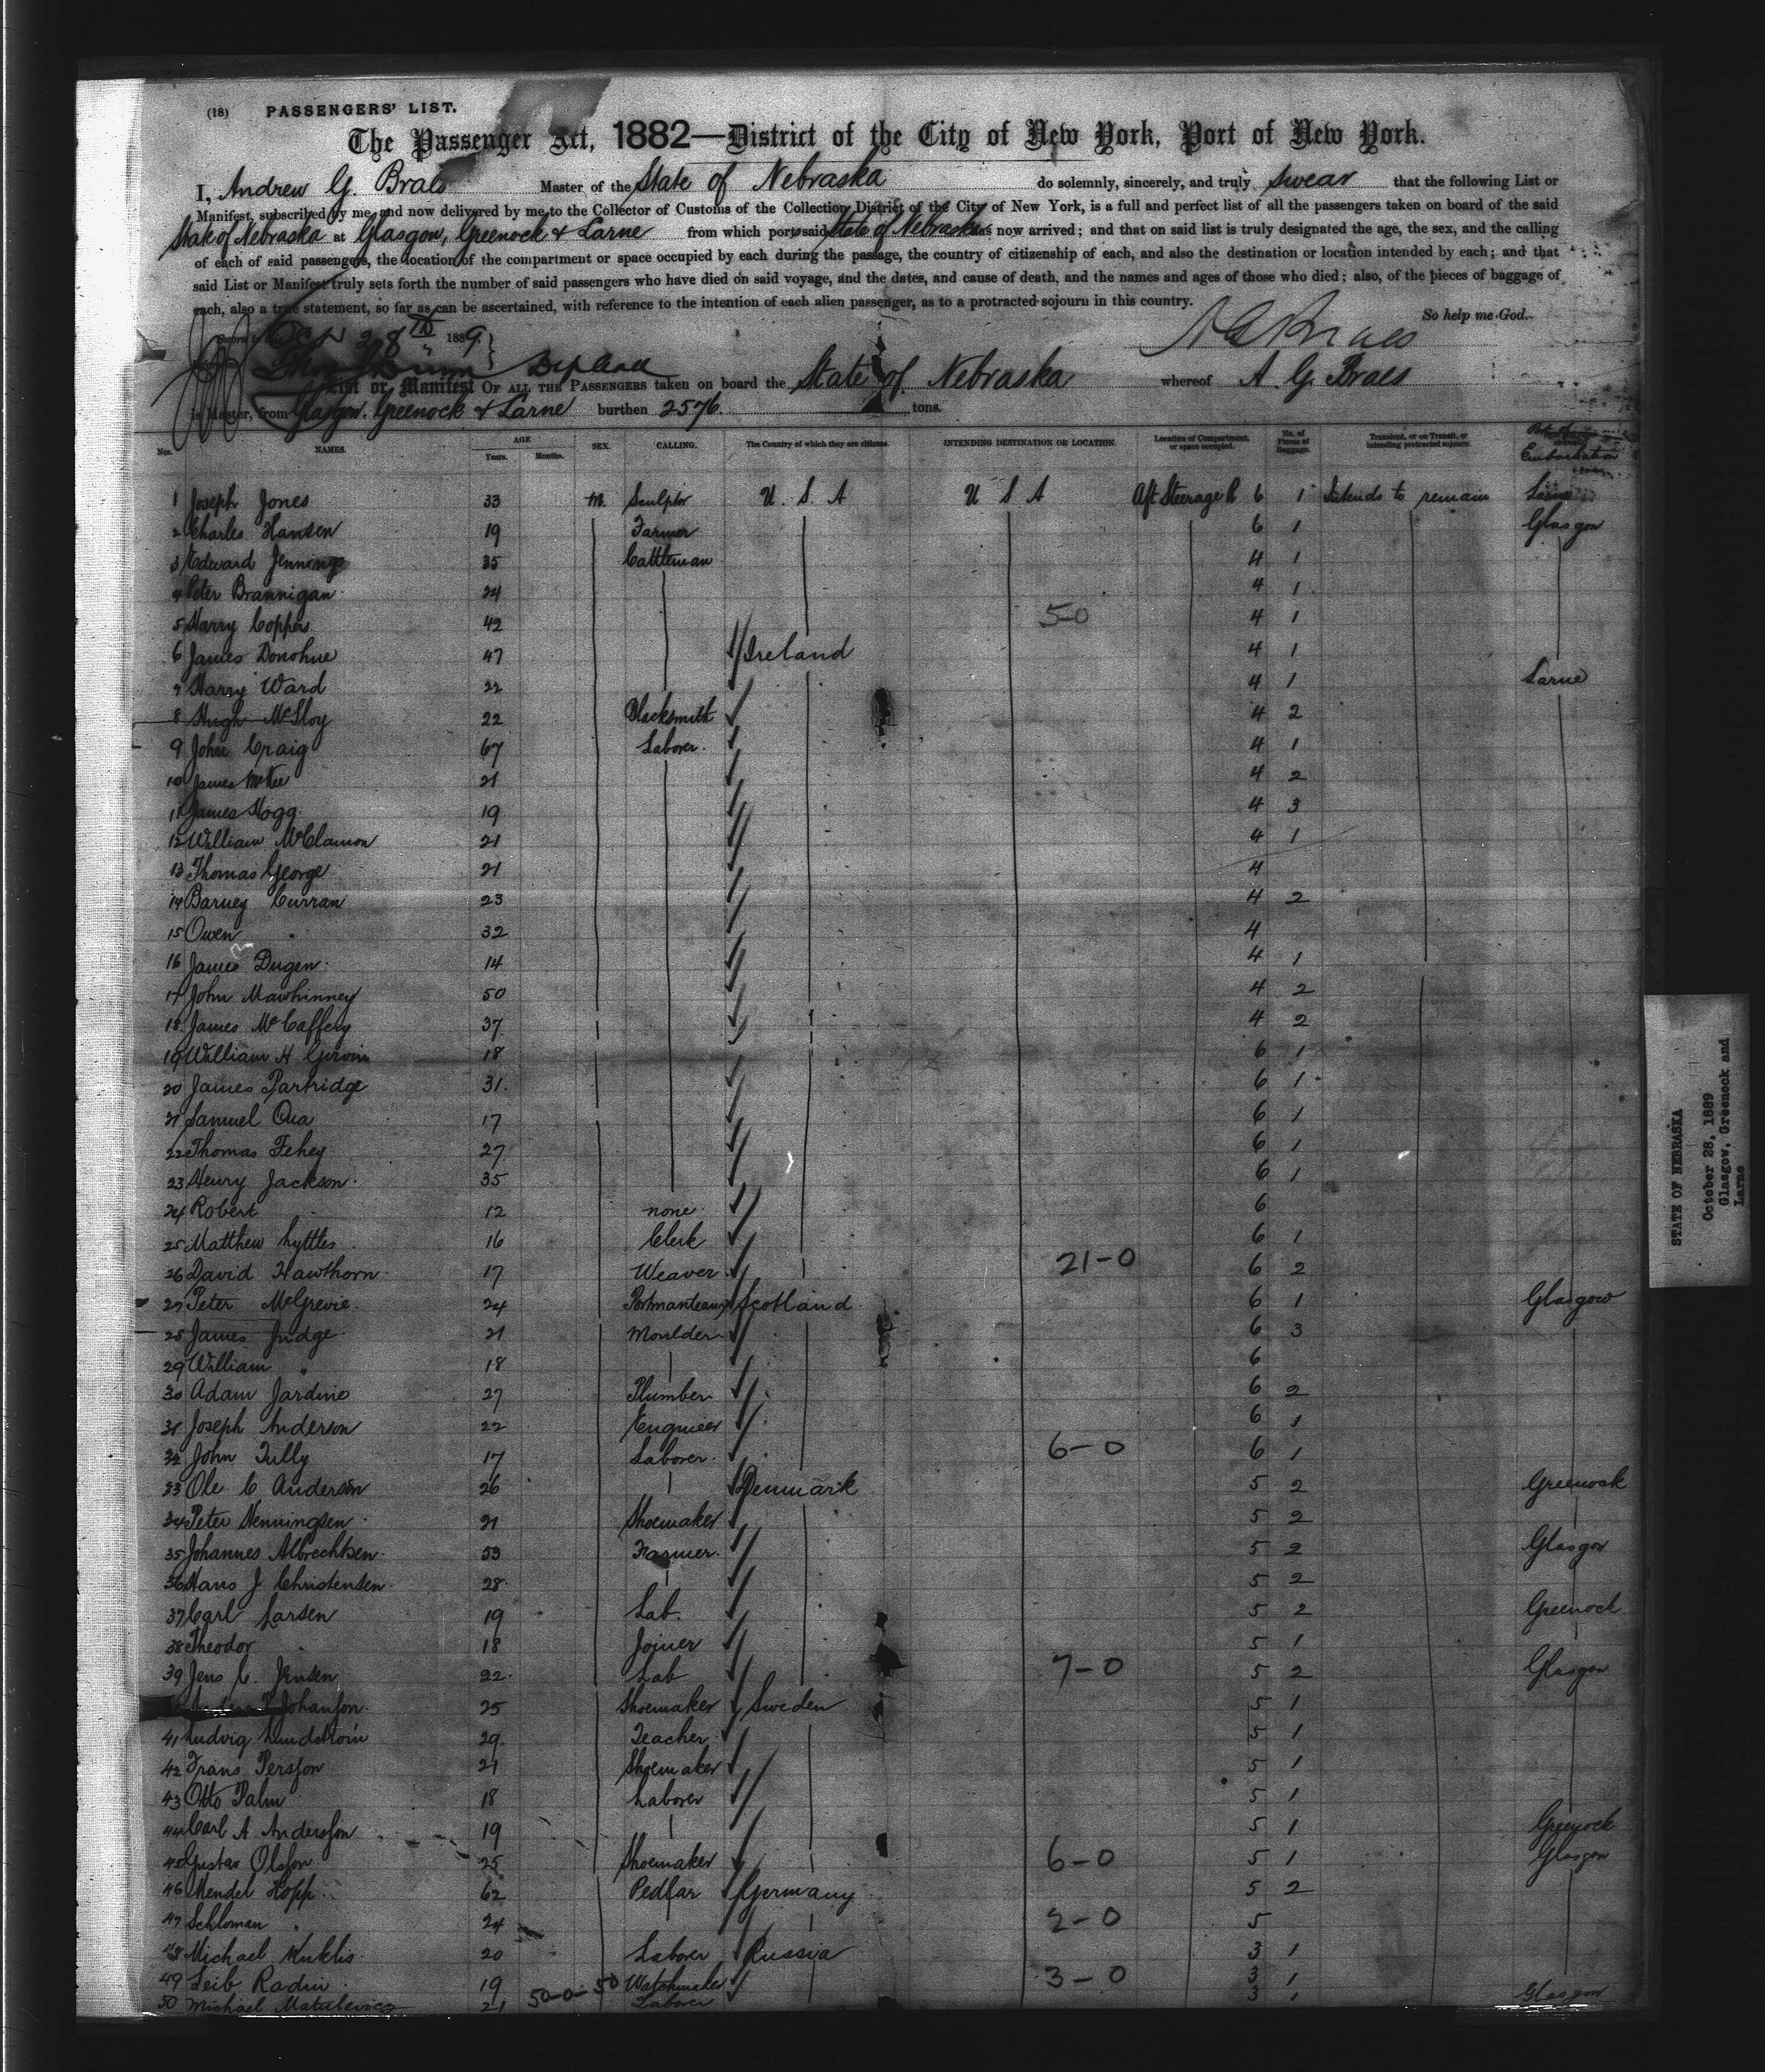 (18) PASSENGERS' LIST.
The Passenger Act, 1882—District of the City of New York, Port of New York.
I, Andrew G. Braes Master of the State of Nebraska do solemnly, sincerely, and truly swear that the following List or
Manifest, subscribed by me, and now delivered by me to the Collector of Customs of the Collection District of the City of New York, is a full and perfect list of all the passengers taken on board of the said
State of Nebraska at Glasgow, Greenock & Larne from which port said State of Nebraska has now arrived; and that on said list is truly designated the age, the sex, and the calling
of each of said passengers, the location of the compartment or space occupied by each during the passage, the country of citizenship of each, and also the destination or location intended by each; and that
said List or Manifest truly sets forth the number of said passengers who have died on said voyage, and the dates, and cause of death, and the names and ages of those who died; also, of the pieces of baggage of
each, also a true statement, so far as can be ascertained, with reference to the intention of each alien passenger, as to a protracted sojourn in this country.
So help me God.
A G Braes
Oct 28th 1889
List or Manifest OF ALL THE PASSENGERS taken on board the State of Nebraska whereof A G. Braes
is Master, from Glasgow, Greenock & Larne burthen 2576 tons.
Nos. NAMES. AGE Years. Months. SEX. CALLING. The Country of which they are citizens. INTENDING DESTINATION OR LOCATION. Location of Compartment, or space occupied. No. of Pieces of Baggage. Transient, or on Transit, or intending protracted sojourn. Port of Embarkation
1 Joseph Jones 33 M. Sculptor U. S. A U S A Aft Steerage 6 1 Intends to remain Larne
2 Charles Hansen 19 Farmer 6 1 Glasgow
3 Edward Jennings 35 Cattleman 4 1
4 Peter Brannigan 24 4 1
5 Harry Coppers 42 50 4 1
6 James Donohue 47 Ireland 4 1
7 Harry Ward 22 4 1 Larne
8 Hugh McIloy 22 Blacksmith 4 2
9 John Craig 67 Laborer. 4 1
10 James McKee 21 4 2
11 James Hogg 19 4 3
12 William McClamon 21 4 1
13 Thomas George 21 4
14 Barney Curran 23 4 2
15 Owen " 32 4
16 James Dugen 14 4 1
17 John Mawhinney 50 4 2
18 James McCaffery 37 4 2
19 William H Girvin 18 6 1
20 James Partridge 31. 6 1
21 Samuel Qua 17 6 1
22 Thomas Fehey 27 6 1
23 Henry Jackson 35 6 1
24 Robert 12 none 6
25 Matthew Lyttles 16 Clerk 6 1
26 David Hawthorn 17 Weaver 21-0 6 2
27 Peter McGrevie 24 Portmanteau Scotland 6 1 Glasgow
28 James Judge 21 Moulder 6 3
29 William " 18 6
30 Adam Jardine 27 Plumber 6 2
31 Joseph Anderson 22 Engineer 6 1
32 John Tully 17 Laborer 6-0 6 1
33 Ole C Anderson 26 Denmark 5 2 Greenock
34 Peter Henningsen 21 Shoemaker 5 2
35 Johannes Albrechtsen 53 Farmer 5 2 Glasgow
36 Hans J Christensen 28 5 2
37 Carl Larsen 19 Lab. 5 2 Greenock
38 Theodor " 18 Joiner 5 1
39 Jens C. Jensen 22 Lab 7-0 5 2 Glasgow
Johanson 25 Shoemaker Sweden 5 1
41 Ludvig Lundstrom 29 Teacher 5 1
42 Frans Persson 21 Shoemaker 5 1
43 Otto Palm 18 Laborer 5 1
44 Carl A Andersson 19 5 1 Greenock
45 Gustav Olsson 25 Shoemaker 6-0 5 1 Glasgow
46 Mendel Hopp 62 Pedlar Germany 5 2
47 Schloman " 24 2-0 5
48 Michael Kuklis 20 Laborer Russia 3 1
49 Leib Radin 19 Watchmaker 3-0 3 1
50 Michael Matulevicz 21 50-0-50 Laborer 3 1 Glasgow
STATE OF NEBRASKA
October 28, 1889
Glasgow, Greenock and
Larne